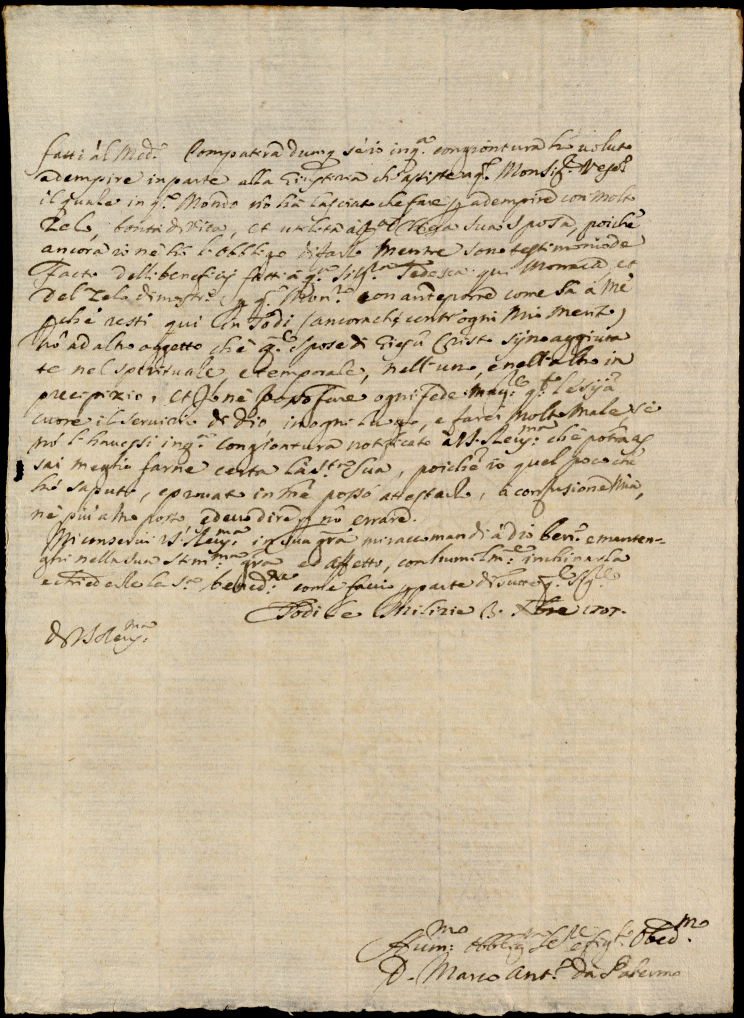 fatti al Med.º Compatirà dunq se io in q.ª congiontura hò voluto
adempire in parte alla che assiste a q. Monsig.r Vesc.
il quale in q.º Mondo nõ hà lasciato che fare p adempire con molto
Zelo, bontà di Vita, et utilità a Chiesa sua sposa, poiche
ancora io ne hò l'obbligo di farlo mentre sono testimonio de
facto delli beneficij fatti à q. Tedesca qui Monaca, et
del Zelo dimostr. da q. Mon.re con anteporre come fà à me
pche resti qui in Todi (ancorche contr'ogni mio merito)
nõ ad altro oggetto che q. spose di Giesù Cristo sijno aggiuta
te nel spirituale, e temporale, nell'uno, e nell'altro in
precipizio, et Io ne posso fare ogni fede
cuore il servitio di Dio, in ogni luogo, e farei molto male se
nõ l'havessi in q.ª congiontura notificato à V.S. Ill.ma che potrà as
sai meglio farne certa la St.à Sua, poiche io quel poco che
hò saputo, e provato in me posso attestarlo, à confusione mia,
ne più a me posto e devo dire p nõ errare.
Mi conservi V.S. Ill.ma in sua grã mi raccomandi à dio ben. e manten-
ghi nella sua stim.ma grã ed affetto, con humilm. inchinarla
e chiederle la S.ª bened.ne come facio p parte di tutte q. Sig.re
Todi le Milizie 3. Xbre 1707.
Di V.S. Ill.ma
Hum.mo Obblig.mo Obed.mo
D. Marco Ant.º da Palermo